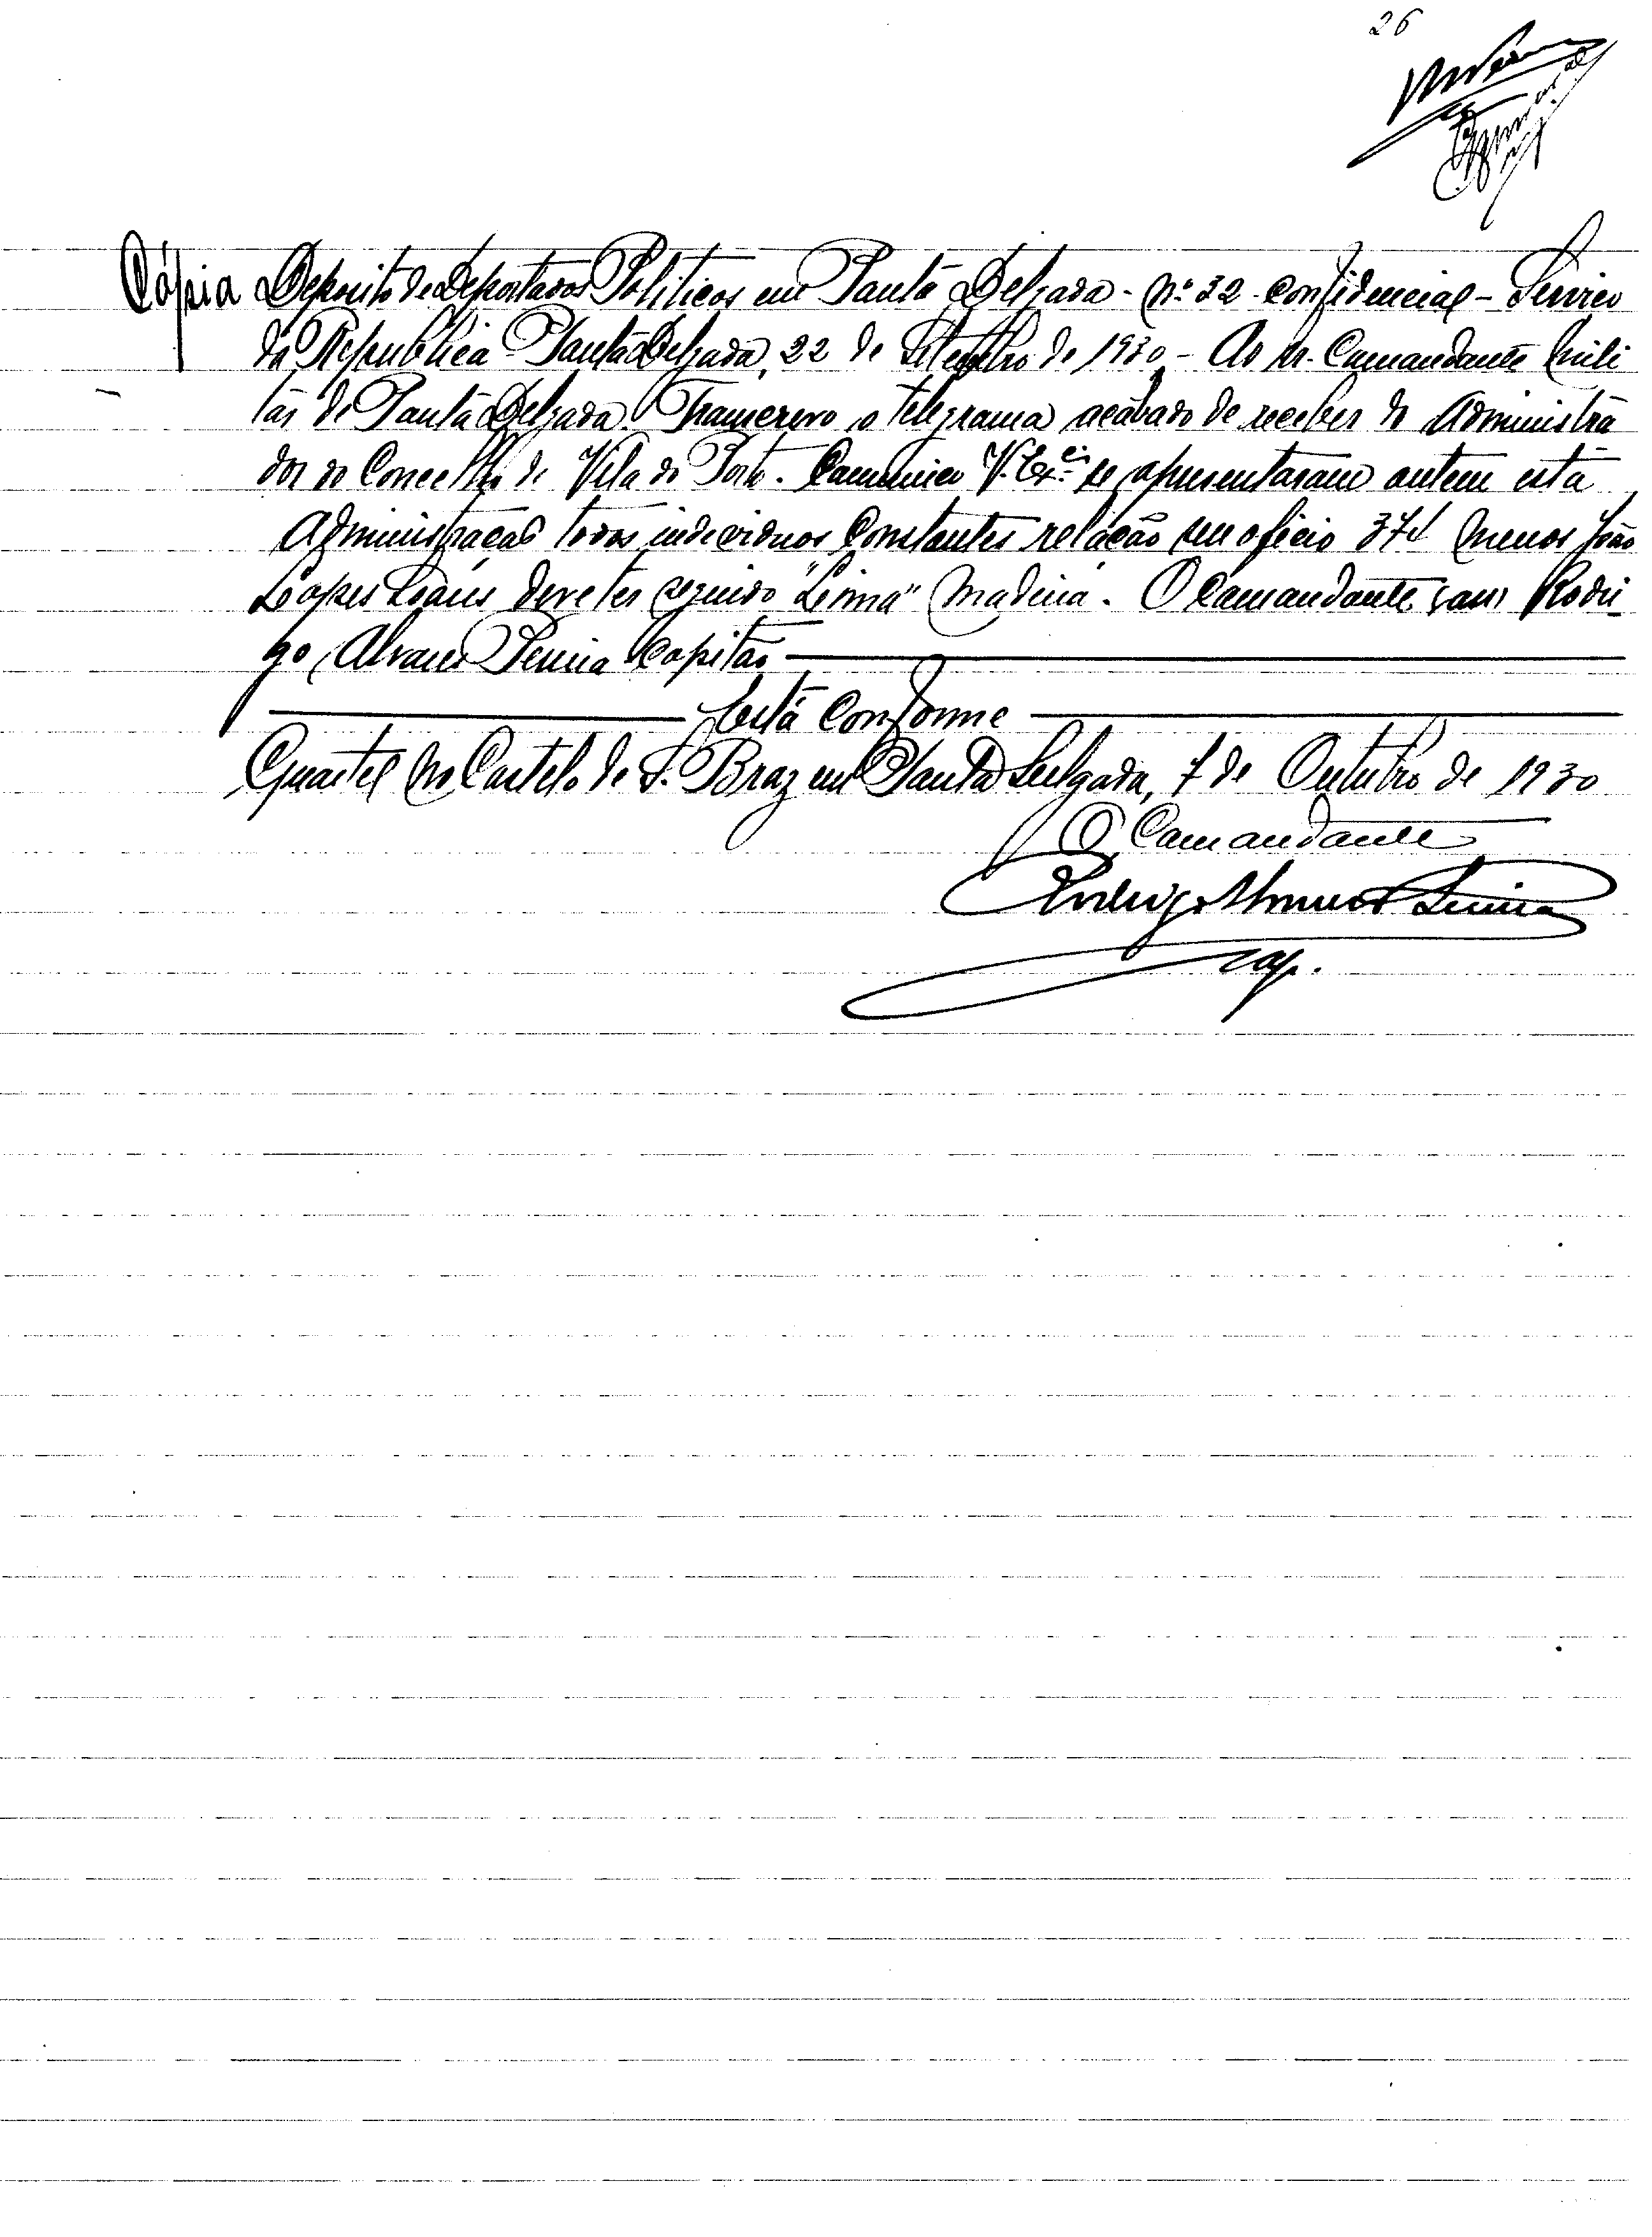 26
Cópia Deposito de Deportados Politicos em Ponta Delgada - Nº 32 - Confidencial - Servico
da Republica - Ponta Delgada, 22 de Setembro de 1930 - Ao Sr. Comandante Mili
tar de Ponta Delgada. Transcrevo o telegrama acabado de receber do Administra
dor do Concelho de Vila do Porto. Comunico V. Exª. se apresentaram ontem esta
Administração todos individuos Constantes relação seu oficio 374 menos João
Lopes Soares deve ter seguido "Lima" Madeira. O Comandante Rodri_
go Alvares Pereira Capitão
Está Conforme
Quartel no Castelo de S. Braz em Ponta Delgada, 7 de Outubro de 1930
O Comandante
Rodrigo Alvares Pereira
cap.